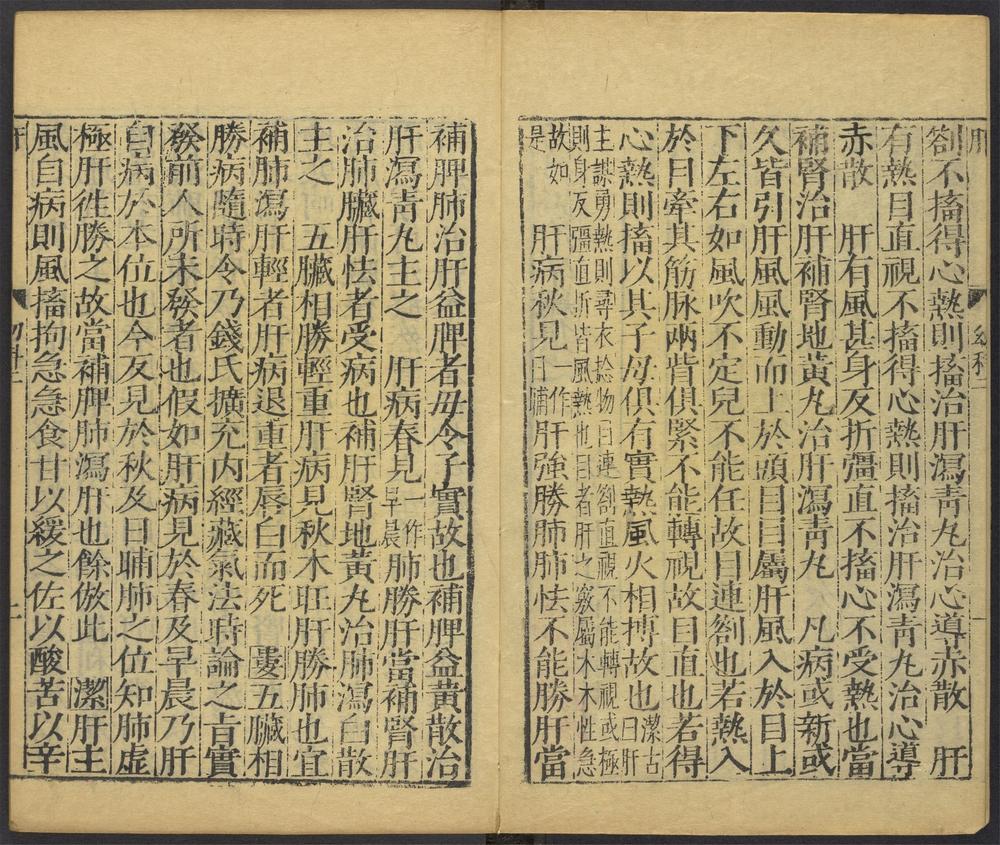 肝
幼科一
劄不搐得心熱則搐治肝瀉青丸治心導赤散　肝
有熱目直視不搐得心熱則搐治肝瀉青丸治心導
赤散　肝有風甚身反折彊直不搐心不受熱也當
補腎治肝補腎地黃丸治肝瀉青丸　凡病或新或
久皆引肝風風動而上於頭目目屬肝風入於目上
下左右如風吹不定兒不能任故目連劄也若熱入
於目牽其筋脉兩眥俱緊不能轉視故目直也若得
心熱則搐以其子母俱有實熱風火相搏故也潔古曰肝
主謀勇熱則尋衣捻物目連劄直視不能轉視或極
則身反彊直折皆風熱也目者肝之竅屬木木性急
故如是　肝病秋見一作日晡肝強勝肺肺怯不能勝肝當
補脾肺治肝益脾者母令子實故也補脾益黃散治
肝瀉青丸主之　肝病春見一作早晨肺勝肝當補腎肝
治肺臟肝怯者受病也補肝腎地黃丸治肺瀉白散
主之　五臟相勝輕重肝病見秋木旺肝勝肺也宜
補肺瀉肝輕者肝病退重者唇白而死　婁五臟相
勝病隨時令乃錢氏擴充內經藏氣法時論之旨實
發前人所未發者也假如肝病見於春及早晨乃肝
自病於本位也今反見於秋及日晡肺之位知肺虛
極肝徃勝之故當補脾肺瀉肝也餘倣此　潔肝主
風自病則風搐拘急急食甘以緩之佐以酸苦以辛